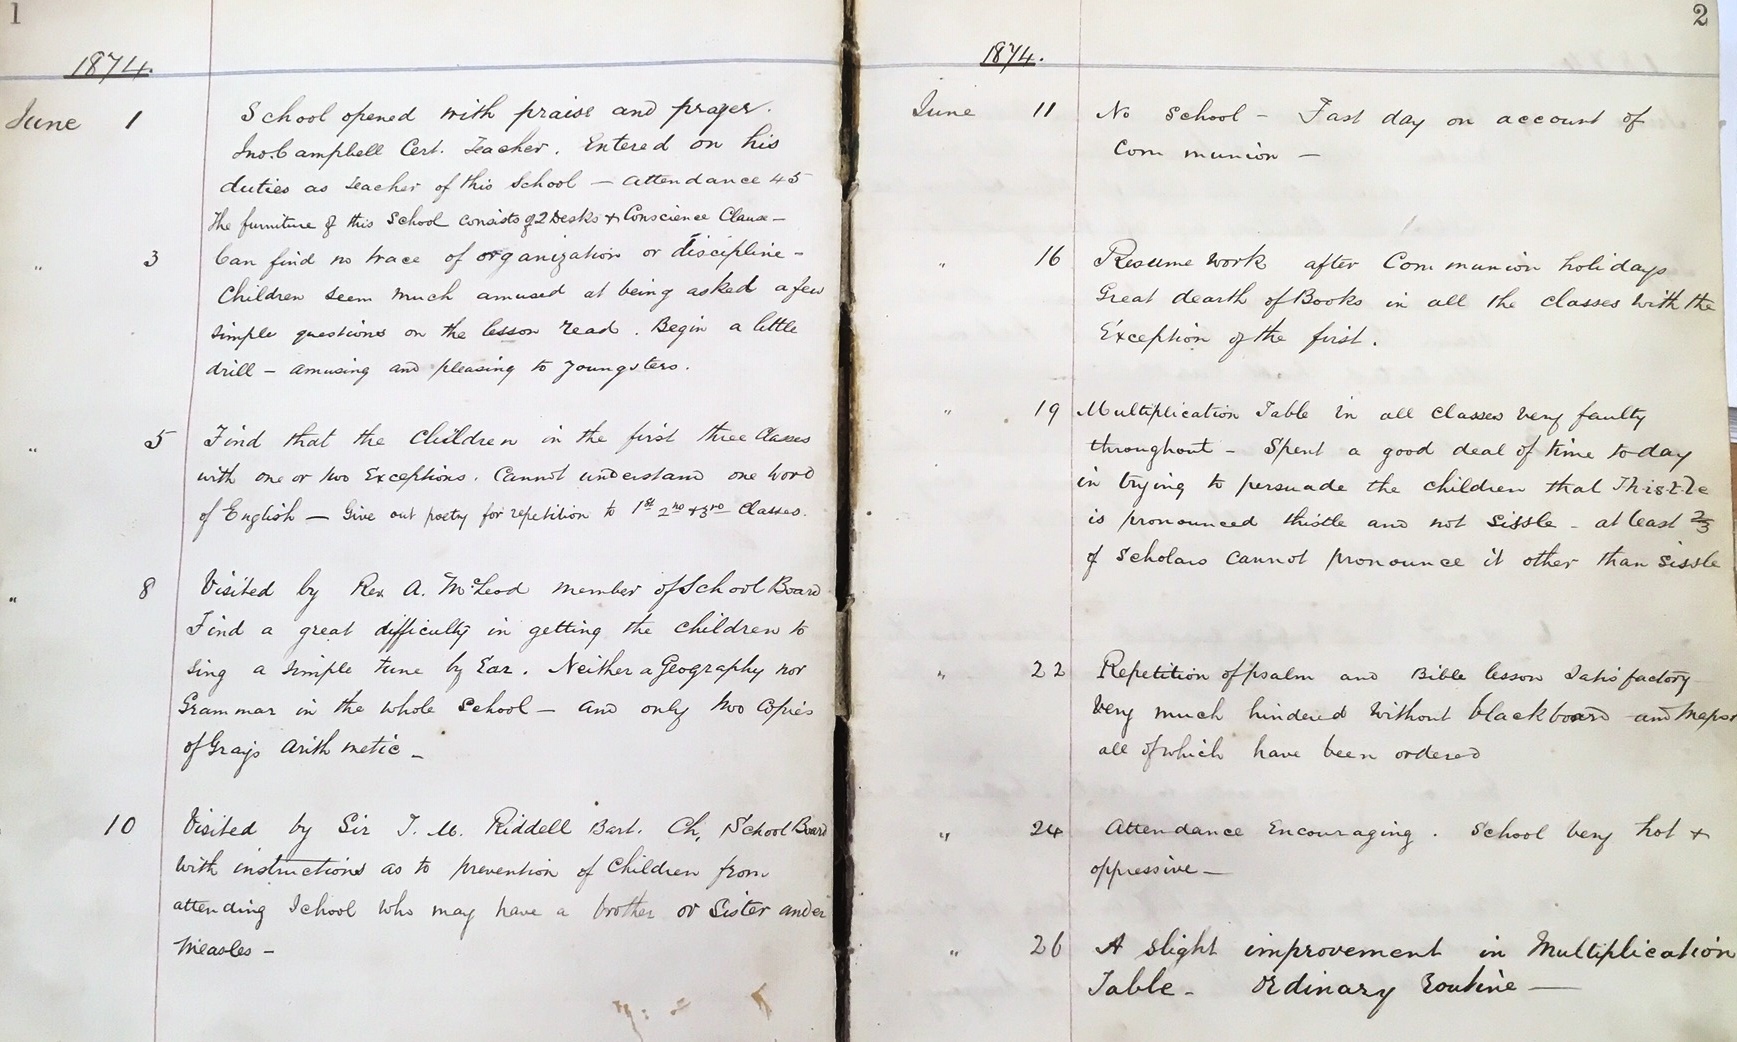 1
1874.
June 1 School opened with praise and prayer.
Jno. Campbell Cert. Teacher. Entered on his
duties as Teacher of this School — Attendance 45
The furniture of this School consists of 2 Desks & Conscience Clause —
" 3 Can find no trace of organization or discipline —
Children seem much amused at being asked a few
simple questions on the lesson read. Begin a little
drill — amusing and pleasing to youngsters.
" 5 Find that the Children in the first three Classes
with one or two Exceptions. Cannot understand one word
of English — Give out poetry for repetition to 1st 2nd & 3rd Classes.
" 8 Visited by Rev A. McLeod member of School Board
Find a great difficulty in getting the children to
sing a simple tune by Ear. Neither a Geography nor
Grammar in the whole School — and only two Copies
of Grays Arithmetic —
10 Visited by Sir T. M. Riddell Bart. Ch, School Board
with instructions as to prevention of Children from
attending School who may have a brother or Sister under
Measles —
2
1874.
June 11 No School — Fast day on account of
Communion —
" 16 Resume work after Communion holidays
Great dearth of Books in all the classes with the
Exception of the first.
" 19 Multiplication Table in all Classes very faulty
throughout — Spent a good deal of time to-day
in trying to persuade the children that Thistle
is pronounced thistle and not Sissle — at least 2/3
of Scholars cannot pronounce it other than Sissle
" 22 Repetition of psalm and Bible lesson Satisfactory
Very much hindered without blackboard and Maps
all of which have been ordered
" 24 Attendance Encouraging. School very hot &
oppressive —
" 26 A slight improvement in Multiplication
Table — Ordinary Routine —